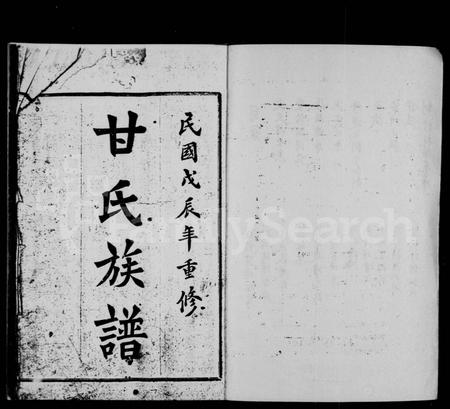 民國戊辰年重修
甘氏族譜
FamilySearch